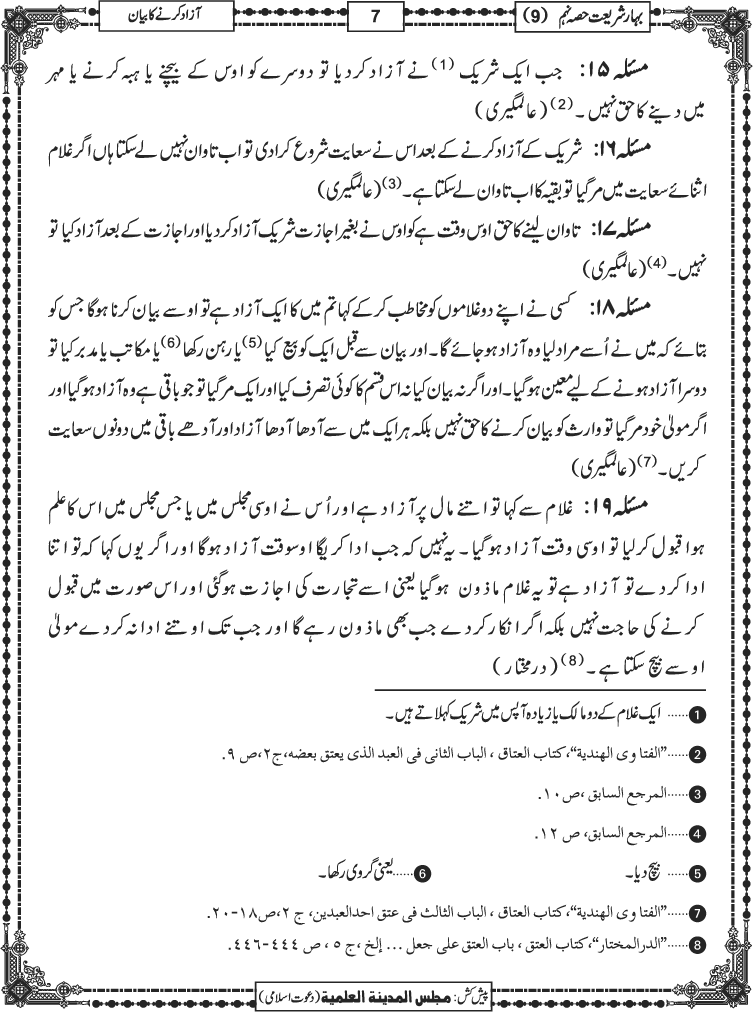 بہارِ شریعت حصہ نہم (9)
7
آزاد کرنے کا بیان
مسئلہ ۱۵: جب ایک شریک (1) نے آزاد کر دیا تو دوسرے کو اوس کے بیچنے یا ہبہ کرنے یا مہر
میں دینے کا حق نہیں۔(2) (عالمگیری)
مسئلہ ۱۶: شریک کے آزاد کرنے کے بعد اس نے سعایت شروع کرادی تو اب تاوان نہیں لے سکتا ہاں اگر غلام
اثنائے سعایت میں مرگیا تو بقیہ کا اب تاوان لے سکتا ہے۔(3) (عالمگیری)
مسئلہ ۱۷: تاوان لینے کا حق اوس وقت ہے کہ اوس نے بغیر اجازت شریک آزاد کر دیا اور اجازت کے بعد آزاد کیا تو
نہیں۔(4) (عالمگیری)
مسئلہ ۱۸: کسی نے اپنے دو غلاموں کو مخاطب کر کے کہا تم میں کا ایک آزاد ہے تو اوسے بیان کرنا ہوگا جس کو
بتائے کہ میں نے اُسے مراد لیا وہ آزاد ہو جائے گا۔ اور بیان سے قبل ایک کو بیع کیا(5) یا رہن رکھا(6) یا مکاتب یا مدبر کیا تو
دوسرا آزاد ہونے کے لیے معین ہوگیا۔ اور اگر نہ بیان کیا نہ اس قسم کا کوئی تصرف کیا اور ایک مرگیا تو جو باقی ہے وہ آزاد ہوگیا اور
اگر مولیٰ خود مرگیا تو وارث کو بیان کرنے کا حق نہیں بلکہ ہر ایک میں سے آدھا آدھا آزاد اور آدھے باقی میں دونوں سعایت
کریں۔(7) (عالمگیری)
مسئلہ ۱۹: غلام سے کہا تو اتنے مال پر آزاد ہے اور اُس نے اوسی مجلس میں یا جس مجلس میں اس کا علم
ہوا قبول کر لیا تو اوسی وقت آزاد ہوگیا۔ یہ نہیں کہ جب ادا کریگا اوسوقت آزاد ہوگا اور اگر یوں کہا کہ تو اتنا
ادا کر دے تو آزاد ہے تو یہ غلام ماذون ہوگیا یعنی اسے تجارت کی اجازت ہوگئی اور اس صورت میں قبول
کرنے کی حاجت نہیں بلکہ اگر انکار کر دے جب بھی ماذون رہے گا اور جب تک اوتنے ادا نہ کر دے مولیٰ
اوسے بیچ سکتا ہے۔(8) (درمختار)
1 ......ایک غلام کے دو مالک یا زیادہ آپس میں شریک کہلاتے ہیں۔
2 ......”الفتاوی الھندیة“، کتاب العتاق، الباب الثانی فی العبد الذی یعتق بعضہ، ج۲، ص ۹.
3 ......المرجع السابق، ص۱۰.
4 ......المرجع السابق، ص ۱۲.
5 ......بیچ دیا۔ 6 ......یعنی گروی رکھا۔
7 ......”الفتاوی الھندیة“، کتاب العتاق، الباب الثالث فی عتق احدالعبدین، ج ۲، ص۱۸-۲۰.
8 ......”الدرالمختار“، کتاب العتق، باب العتق علی جعل ... إلخ، ج ٥، ص ٤٤٤-٤٤٦.
پیش کش: مجلس المدینة العلمیة (دعوت اسلامی)